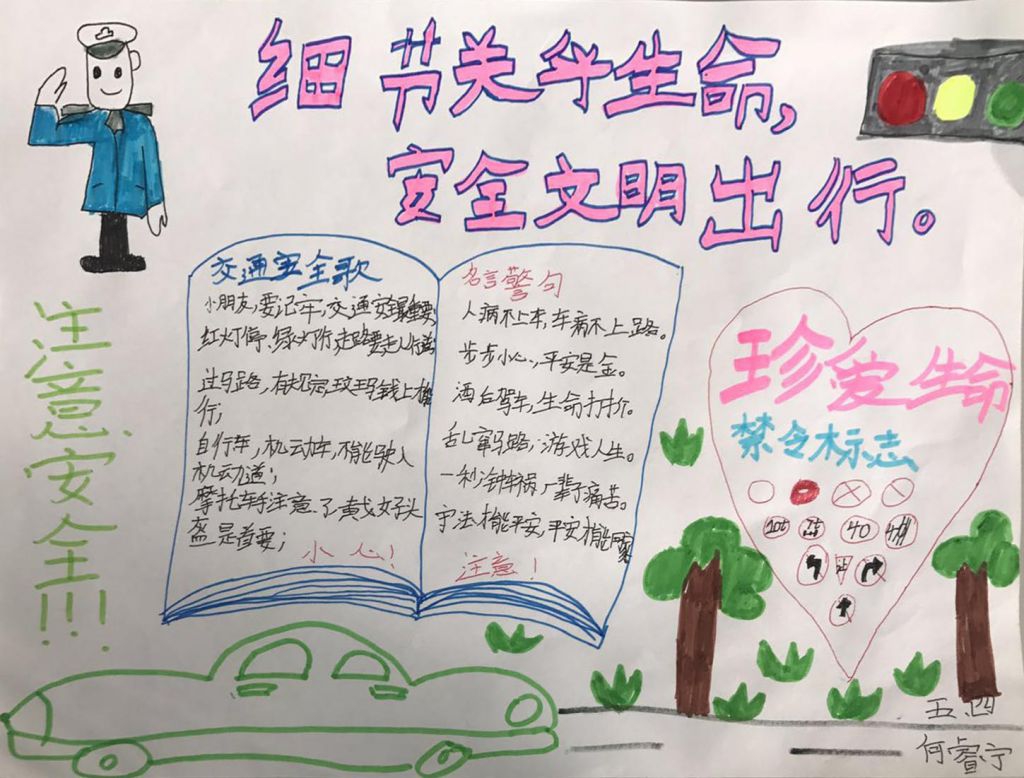 细节关乎生命,
安全文明出行。
注意安全!!!
交通安全歌
小朋友,要记牢,交通安全最重要
红灯停、绿灯行,走路要走人行道
过马路,有规定,斑马线上
行;
自行车,机动车,不能驶入
机动道;
摩托车手注意了戴好头
盔是首要;
小心!
名言警句
人病不上车,车病不上路。
步步小心,平安是金。
酒后驾车,生命打折。
乱窜马路,游戏人生。
一秒钟车祸,一辈子痛苦。
守法才能平安,平安才能回家
注意!
珍爱生命
禁令标志
40
五.四
何睿宁